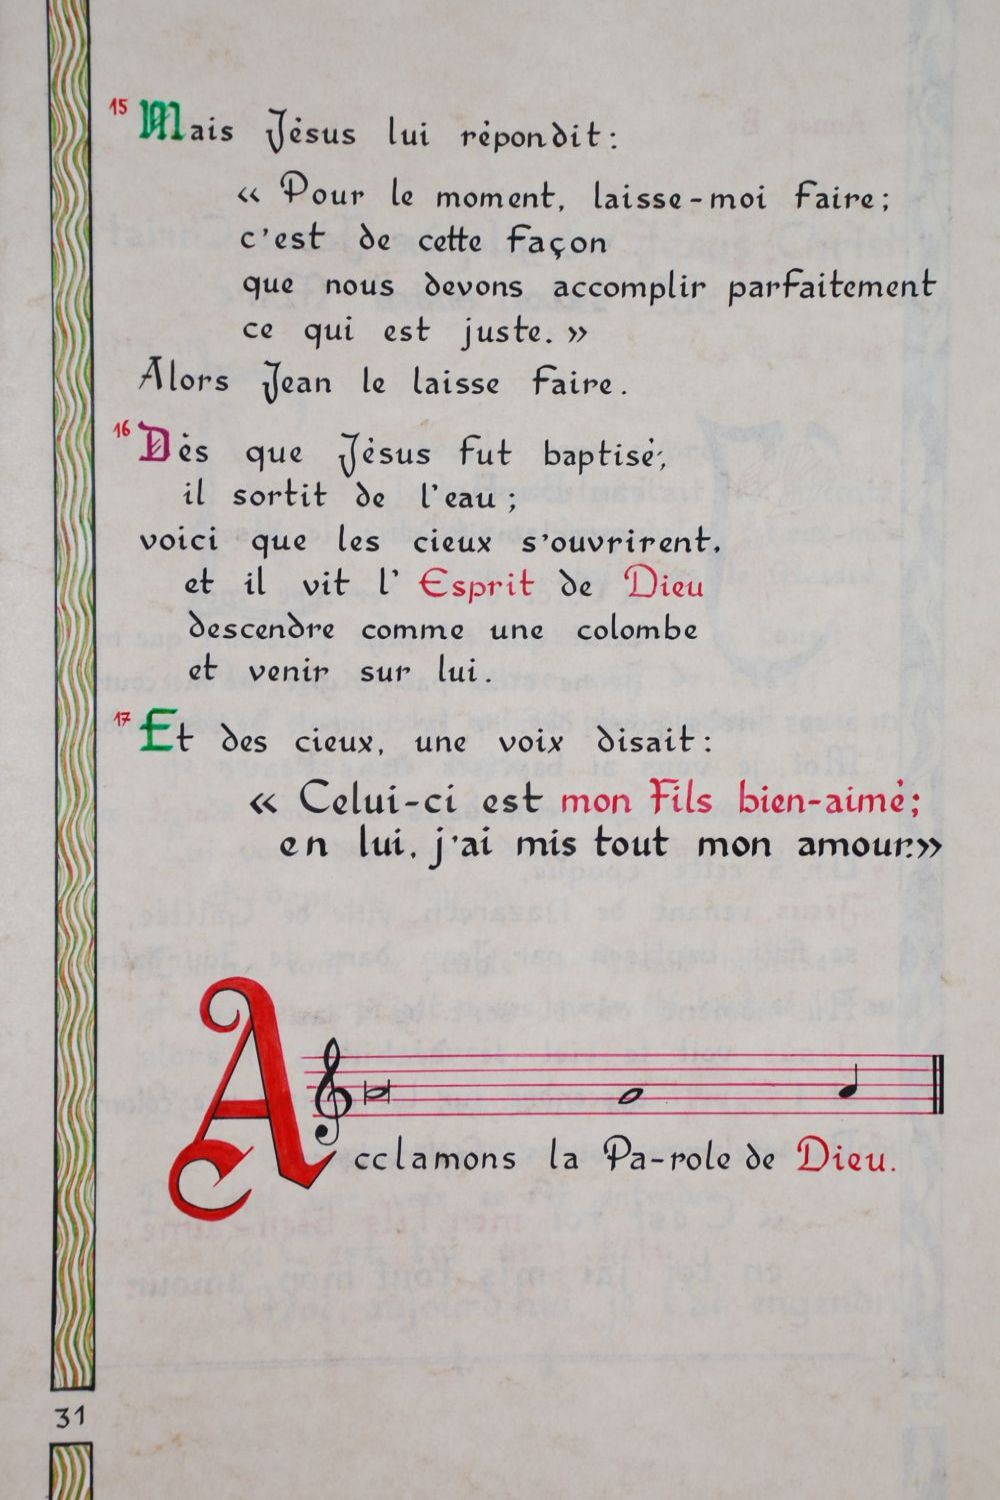 15 Mais Jésus lui répondit :
« Pour le moment, laisse-moi faire ;
c'est de cette façon
que nous devons accomplir parfaitement
ce qui est juste. »
Alors Jean le laisse faire.
16 Dès que Jésus fut baptisé,
il sortit de l'eau ;
voici que les cieux s'ouvrirent,
et il vit l' Esprit de Dieu
descendre comme une colombe
et venir sur lui.
17 Et des cieux, une voix disait :
« Celui-ci est mon Fils bien-aimé ;
en lui, j'ai mis tout mon amour. »
Acclamons la Pa-role de Dieu.
31